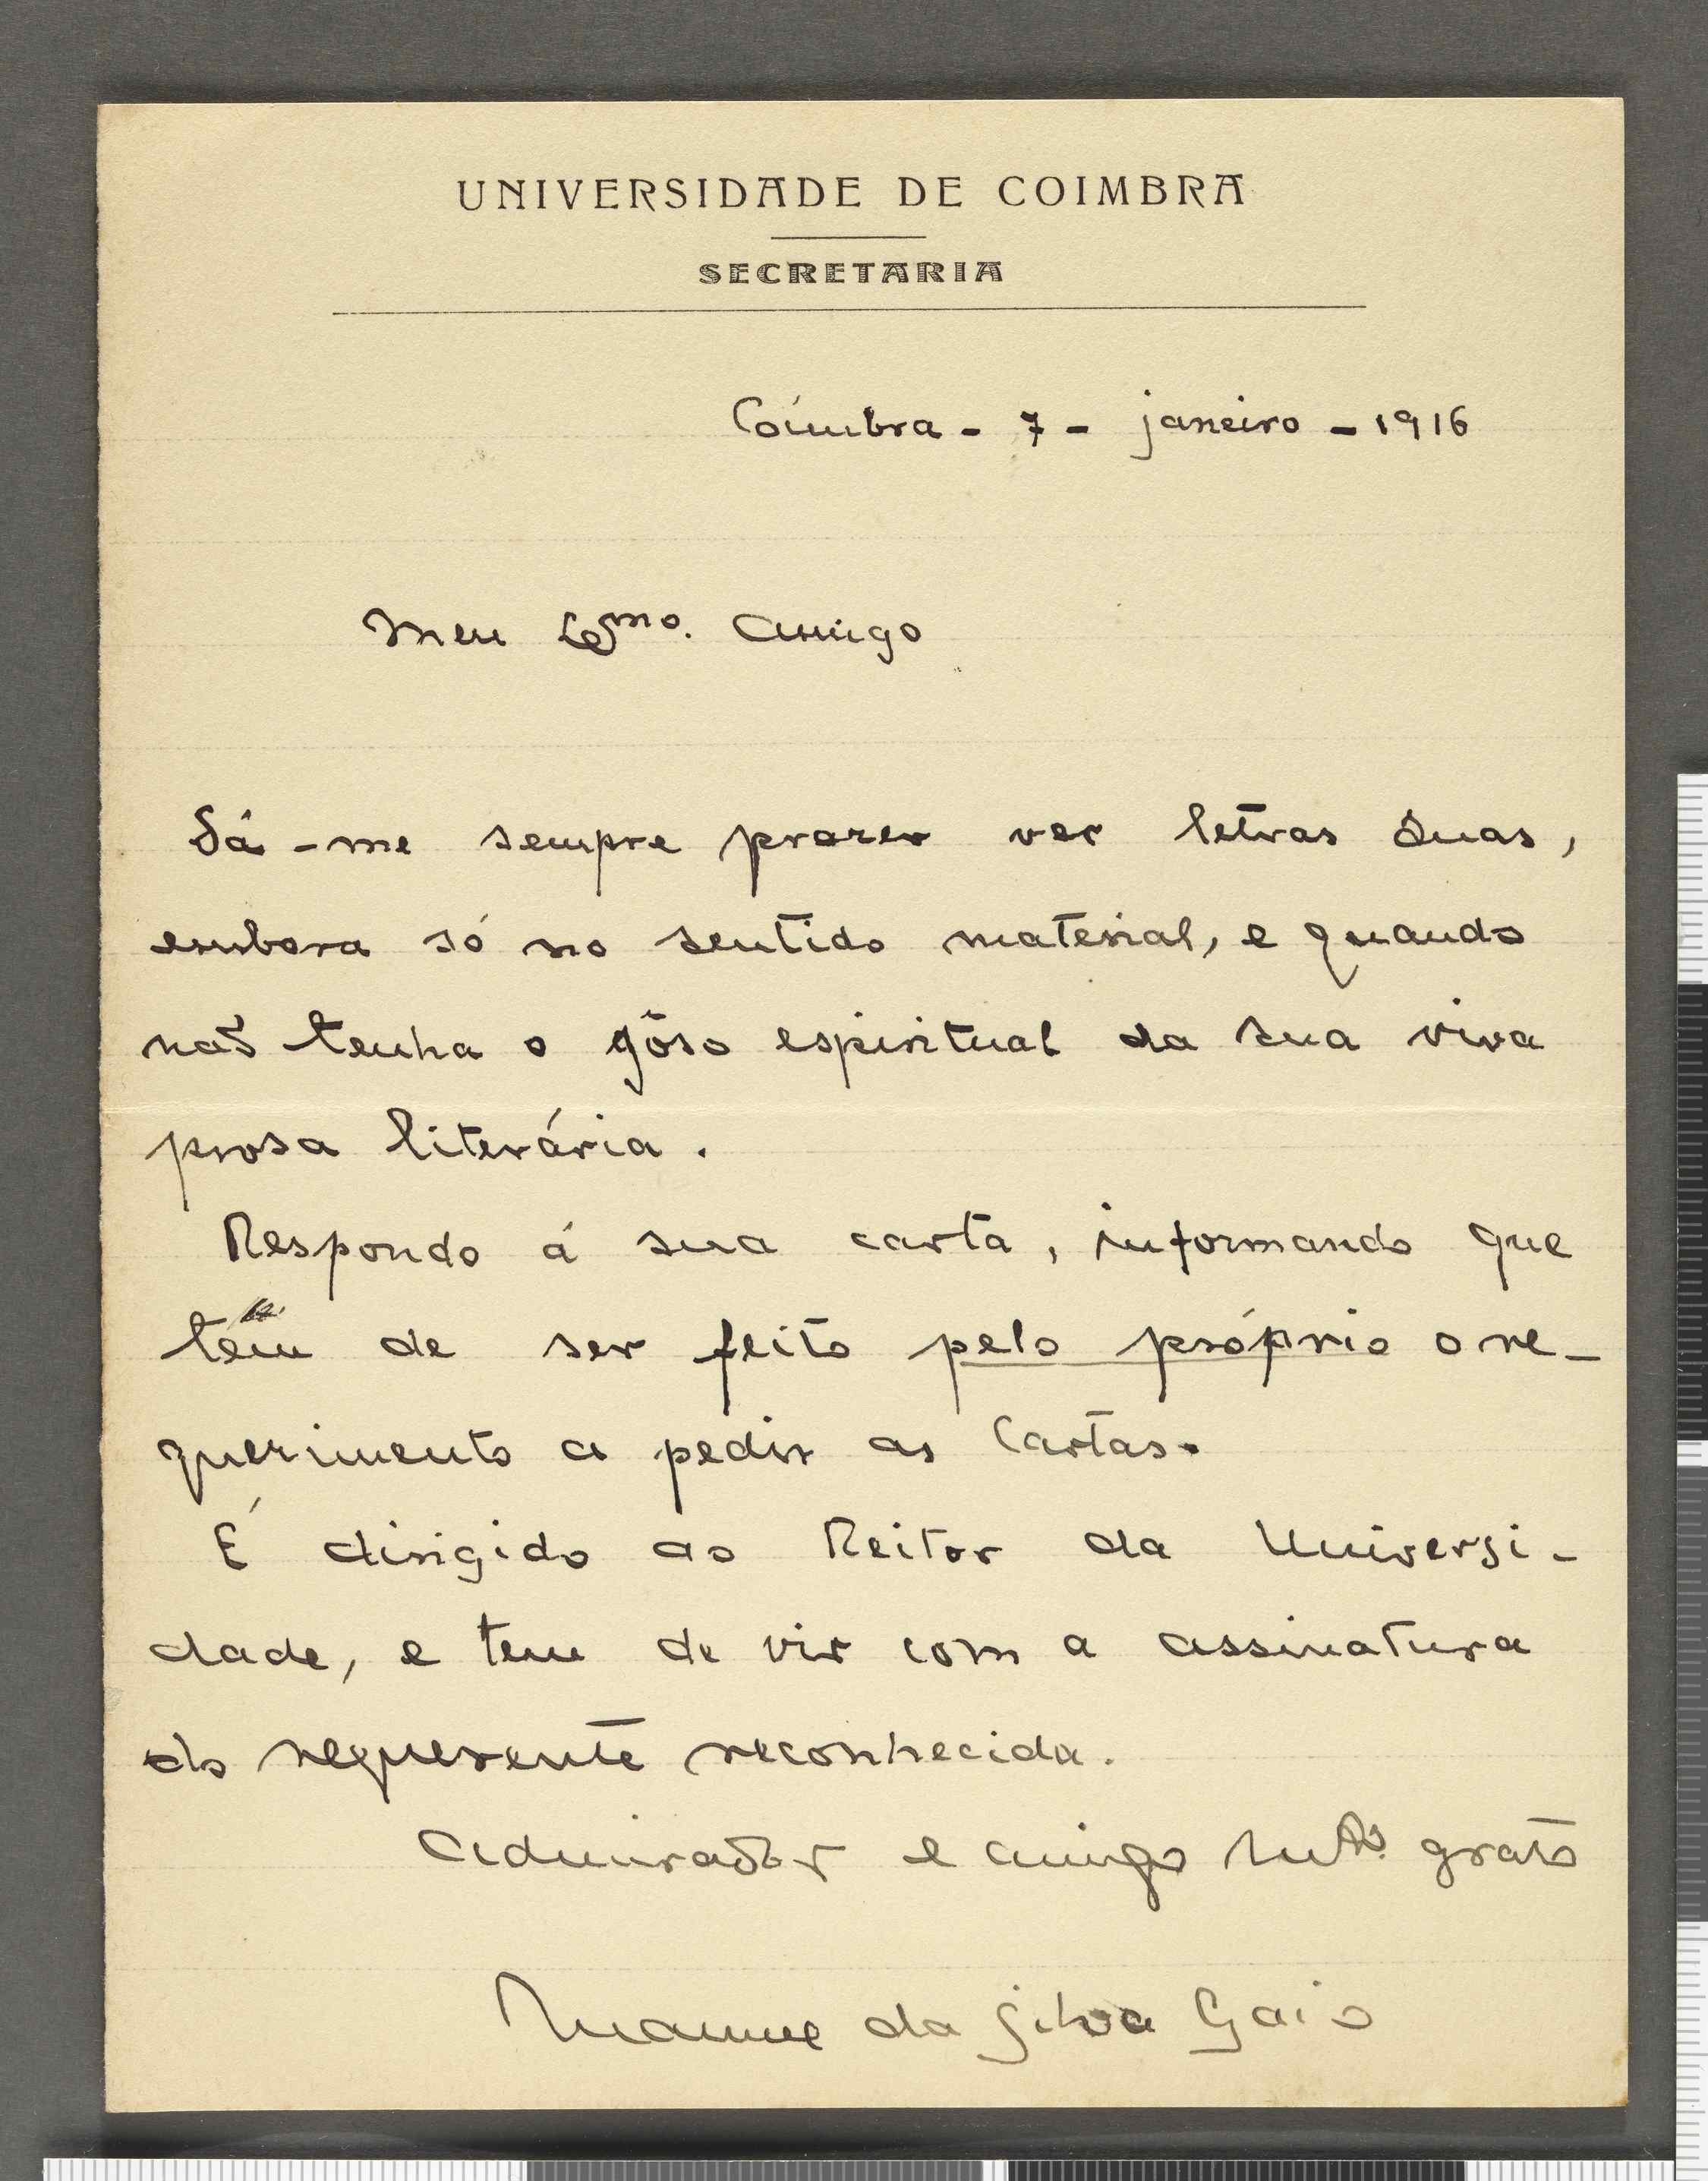 UNIVERSIDADE DE COIMBRA
SECRETARIA
Coimbra - 7 - janeiro - 1916
Meu Exmo. Amigo
Dá-me sempre prazer ver letras suas,
embora só no sentido material, e quando
não tenha o gôso espiritual da sua viva
prosa literária.
Respondo á sua carta, informando que
tem de ser feito pelo próprio o re-
querimento a pedir as Cartas.
É dirigido ao Reitor da Universi-
dade, e tem de vir com a assinatura
do requerente reconhecida.
Admirador e amigo mto. grato
Manuel da Silva Gaio